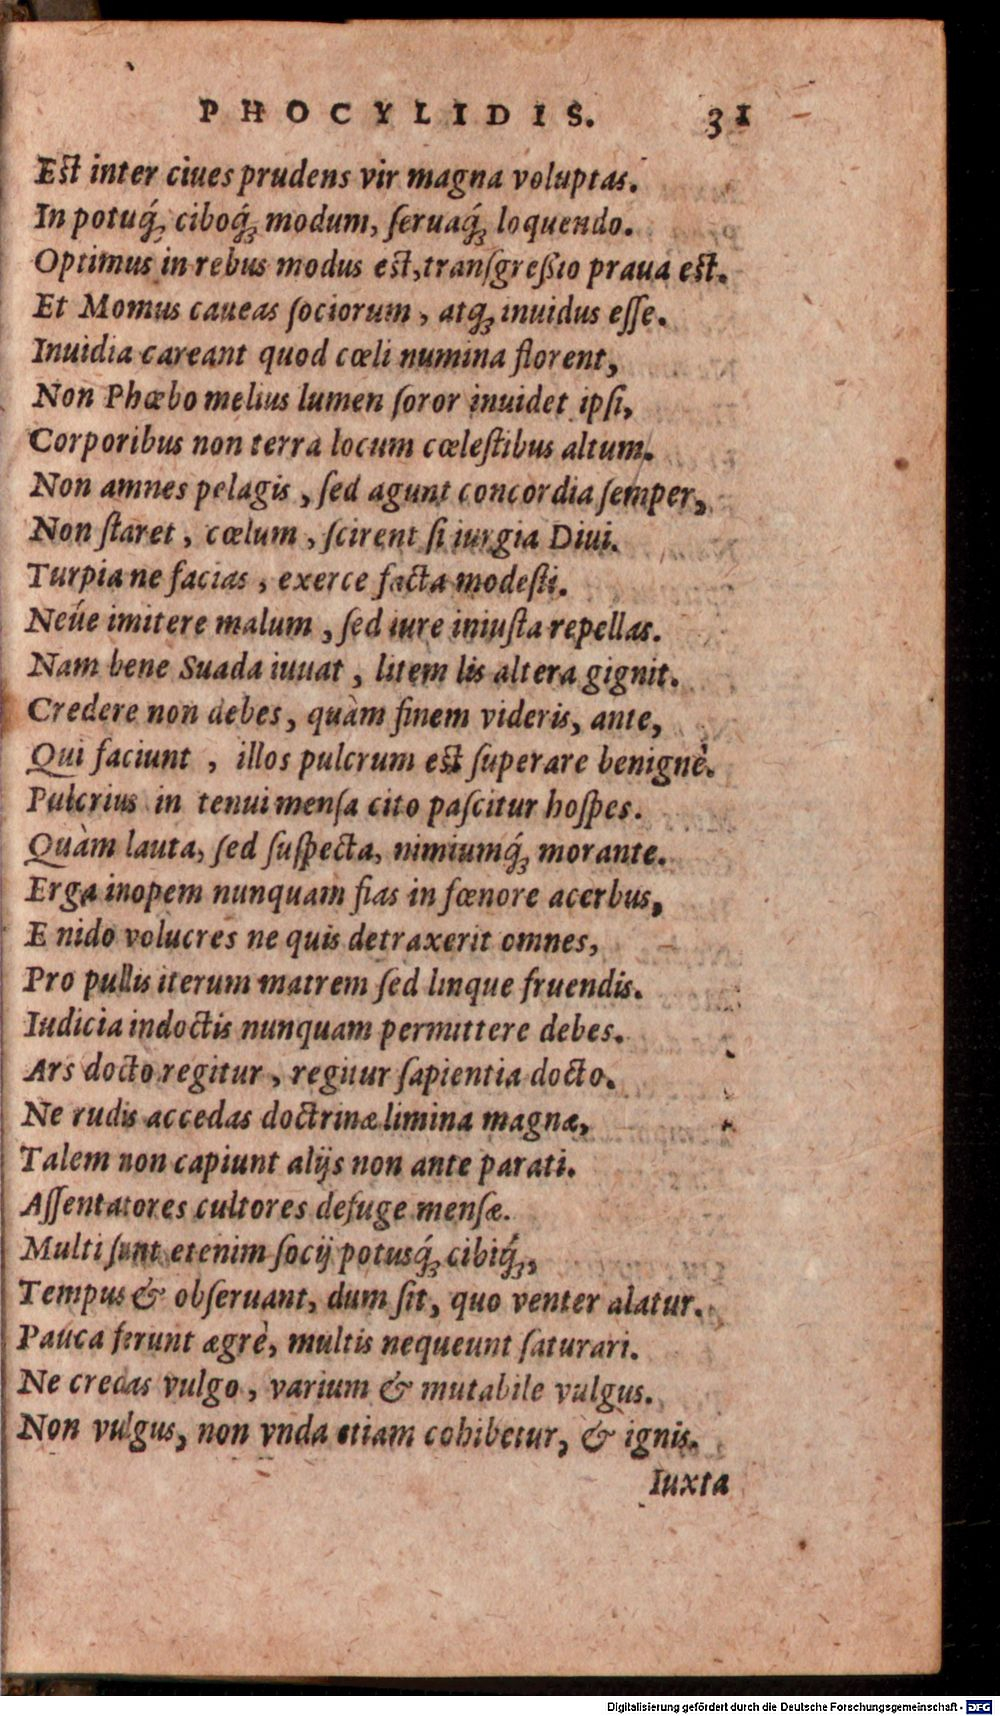 PHOCYLIDIS. 31
Est inter ciues prudens vir magna voluptas.
In potuq́ꝫ, ciboq́ꝫ modum, ſeruaq́ꝫ loquendo.
Optimus in rebus modus est, tranſgreßio praua est.
Et Momus caueas ſociorum, atqꝫ inuidus eſſe.
Inuidia careant quod cœli numina florent,
Non Phœbo melius lumen ſoror inuidet ipſi,
Corporibus non terra locum cœleſtibus altum.
Non amnes pelagis, ſed agunt concordia ſemper,
Non ſtaret, cœlum, ſcirent ſi iurgia Diui.
Turpia ne facias, exerce facta modeſti.
Neúe imitere malum, ſed iure iniuſta repellas.
Nam bene Suada iuuat, litem lis altera gignit.
Credere non debes, quàm finem videris, ante,
Qui faciunt, illos pulcrum est ſuperare benignè.
Pulcrius in tenui menſa cito paſcitur hoſpes.
Quàm lauta, ſed ſuſpecta, nimiumq́ꝫ morante.
Erga inopem nunquam fias in fœnore acerbus,
E nido volucres ne quis detraxerit omnes,
Pro pullis iterum matrem ſed linque fruendis.
Iudicia indoctis nunquam permittere debes.
Ars docto regitur, regitur ſapientia docto.
Ne rudis accedas doctrinæ limina magnæ,
Talem non capiunt alijs non ante parati.
Aſſentatores cultores defuge menſæ.
Multi ſunt etenim ſocij potusq́ꝫ cibiq́ꝫ,
Tempus & obſeruant, dum ſit, quo venter alatur.
Pauca ferunt ægrè, multis nequeunt ſaturari.
Ne credas vulgo, varium & mutabile vulgus.
Non vulgus, non vnda etiam cohibetur, & ignis.
Iuxta
Digitalisierung gefördert durch die Deutsche Forschungsgemeinschaft - DFG